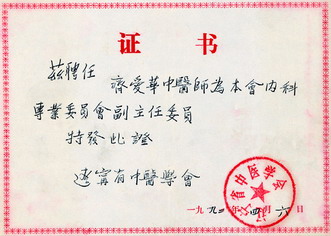 证书
兹聘任 齊爱華中醫師為本會内科
專業委員會副主任委員
特發此證
遼寧省中醫學會
一九九二年四月六日
省中医学会